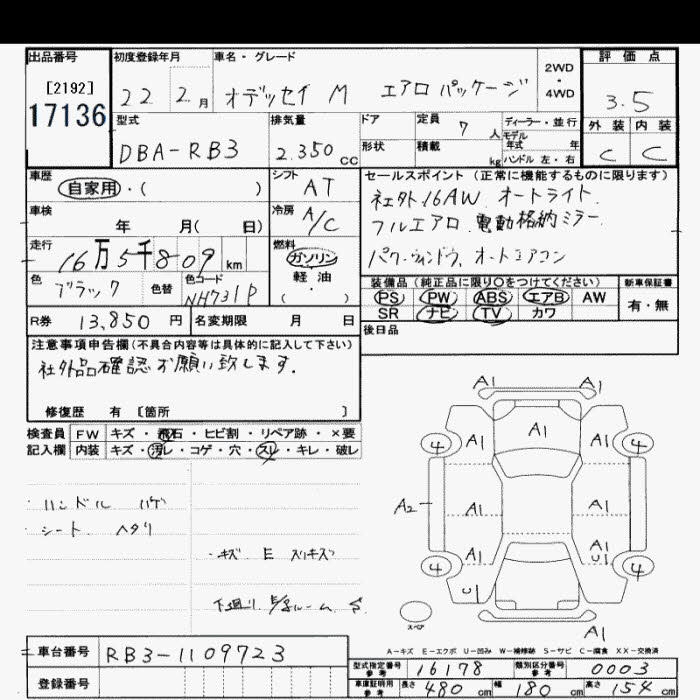 出品番号
[2192]
17136
初度登録年月
22 2月
車名・グレード
オデッセイ M エアロパッケージ
2WD
・
4WD
評価点
3.5
外装 内装
C C
型式
DBA-RB3
排気量
2.350cc
ドア
形状
定員 7人
積載 kg
ディーラー・並行
モデル年式 年
ハンドル 左・右
車歴
自家用・( )
シフト
AT
車検
年 月( 日)
冷房
A/C
走行
16万5千809km
燃料
ガソリン
軽・油
・
( )
色
ブラック
色替
色コード
NH731P
セールスポイント(正常に機能するものに限ります)
社外16AW オートライト
フルエアロ 電動格納ミラー
パワーウィンドウ、オートエアコン
装備品(純正品に限り○をつけてください)
PS PW ABS エアB AW
SR ナビ TV カワ
新車保証書
有・無
後日品
R券 13,850円
名変期限 月 日
注意事項申告欄(不具合内容等は具体的に記入して下さい)
社外品確認お願い致します.
修復歴 有 [箇所 ]
検査員
記入欄
FW キズ・飛石・ヒビ割・リペア跡・×要
内装 キズ・汚レ・コゲ・穴・スレ・キレ・破レ
ハンドル ハゲ
シート ヘタリ
・キズ E スリキズ
A1 A1
4 A1 A1 A1 4
A2 A1 A1
A1 A1
U1
4 4
U1 A1
A1
スペア
A-キズ E-エクボ U-凹み W-補修跡 S-サビ C-腐食 XX-交換済
車台番号
RB3-1109723
登録番号
型式指定番号
参考
16178
類別区分番号
参考
0003
車庫証明用
参考
長さ 480cm 幅 180cm 高さ 154cm